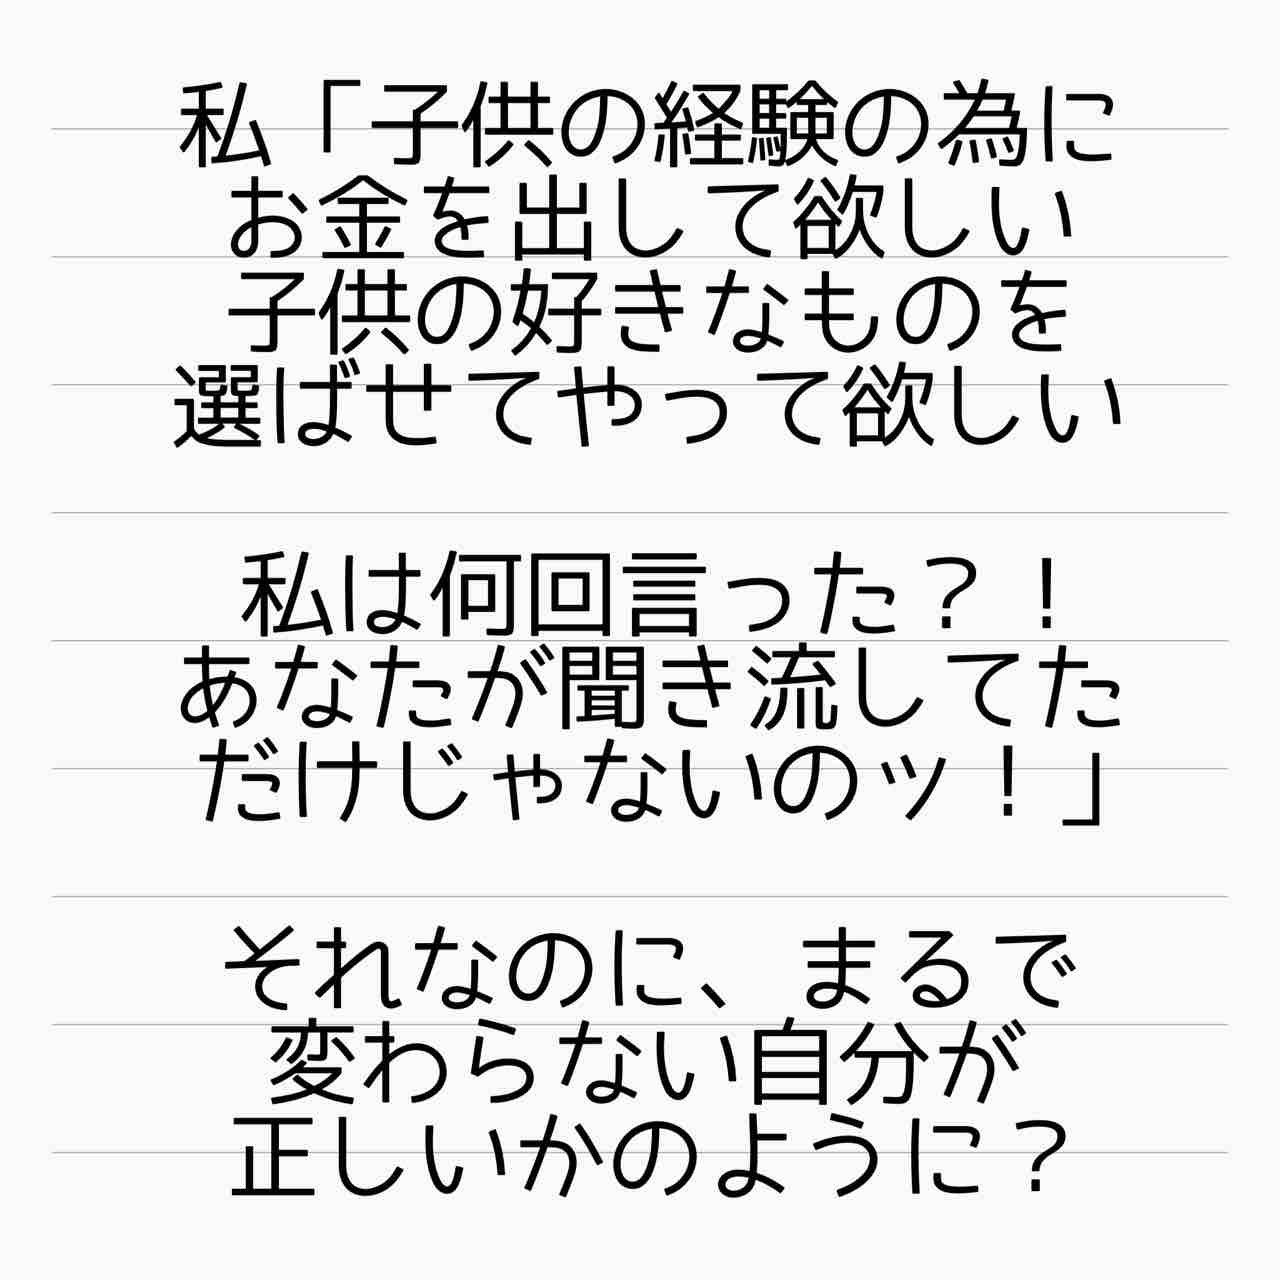 私「子供の経験の為に
お金を出して欲しい
子供の好きなものを
選ばせてやって欲しい
私は何回言った？！
あなたが聞き流してた
だけじゃないのッ！」
それなのに、まるで
変わらない自分が
正しいかのように？